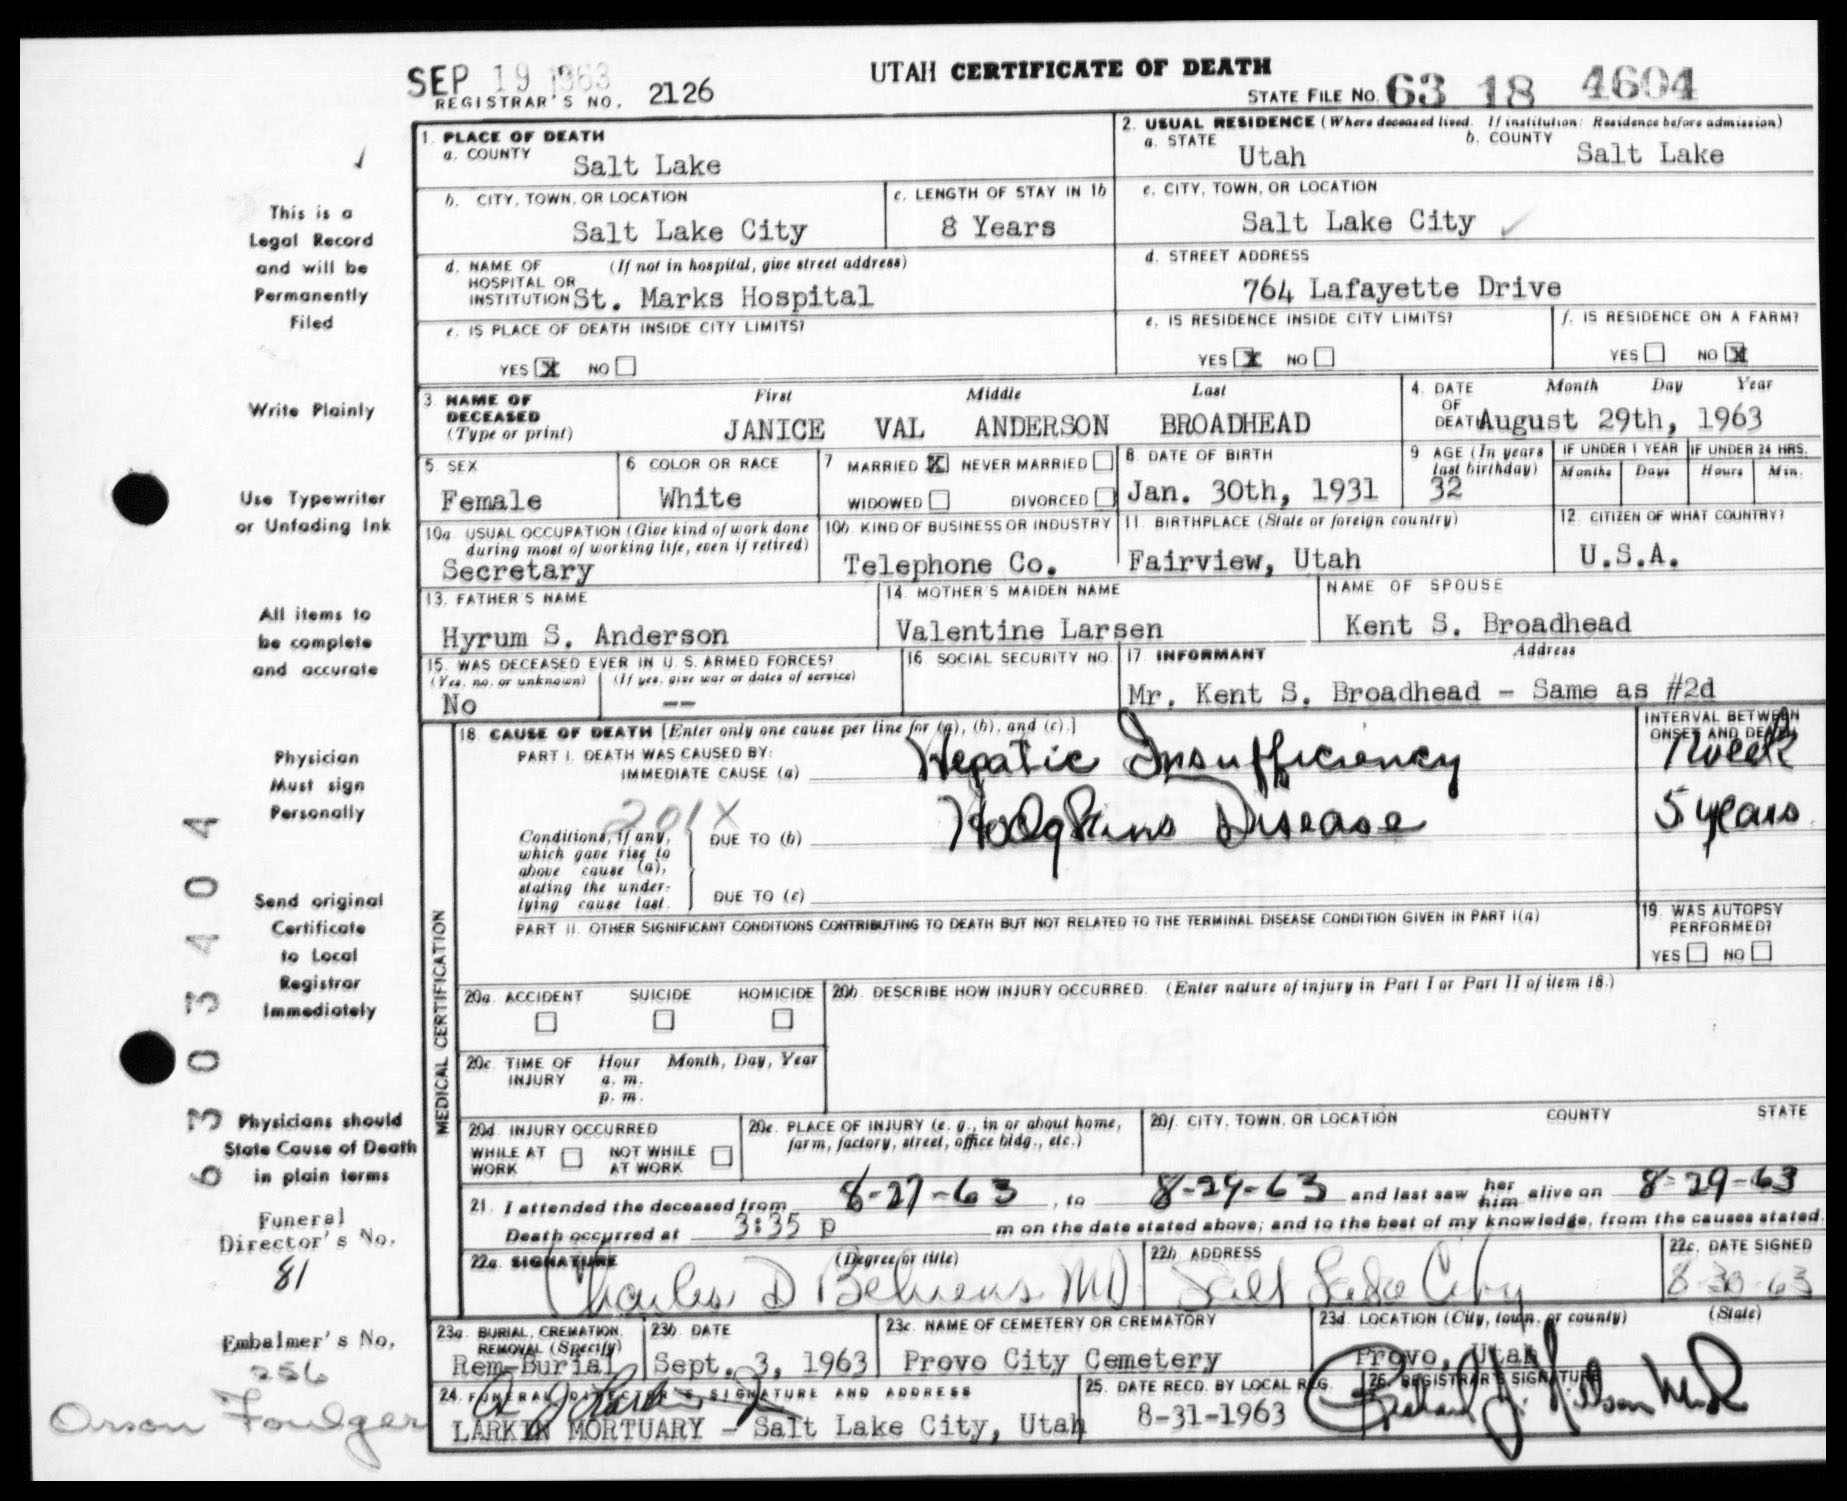 SEP 19 1963
REGISTRAR'S NO. 2126
UTAH CERTIFICATE OF DEATH
STATE FILE NO. 63 18 4604
1. PLACE OF DEATH
a. COUNTY
Salt Lake
2. USUAL RESIDENCE (Where deceased lived. If institution: Residence before admission)
a. STATE
Utah
b. COUNTY
Salt Lake
b. CITY, TOWN, OR LOCATION
Salt Lake City
c. LENGTH OF STAY IN 1b
8 Years
c. CITY, TOWN, OR LOCATION
Salt Lake City
d. NAME OF HOSPITAL OR INSTITUTION (If not in hospital, give street address)
St. Marks Hospital
d. STREET ADDRESS
764 Lafayette Drive
e. IS PLACE OF DEATH INSIDE CITY LIMITS?
YES X NO
e. IS RESIDENCE INSIDE CITY LIMITS?
YES X NO
f. IS RESIDENCE ON A FARM?
YES NO X
3. NAME OF DECEASED (Type or print)
First Middle Last
JANICE VAL ANDERSON BROADHEAD
4. DATE OF DEATH
Month Day Year
August 29th, 1963
5. SEX
Female
6 COLOR OR RACE
White
7 MARRIED X NEVER MARRIED
WIDOWED DIVORCED
8. DATE OF BIRTH
Jan. 30th, 1931
9 AGE (In years last birthday)
32
IF UNDER 1 YEAR
Months Days
IF UNDER 24 HRS.
Hours Min.
10a. USUAL OCCUPATION (Give kind of work done during most of working life, even if retired)
Secretary
10b. KIND OF BUSINESS OR INDUSTRY
Telephone Co.
11. BIRTHPLACE (State or foreign country)
Fairview, Utah
12. CITIZEN OF WHAT COUNTRY?
U.S.A.
13. FATHER'S NAME
Hyrum S. Anderson
14. MOTHER'S MAIDEN NAME
Valentine Larsen
NAME OF SPOUSE
Kent S. Broadhead
15. WAS DECEASED EVER IN U. S. ARMED FORCES?
(Yes, no, or unknown) (If yes, give war or dates of service)
No --
16. SOCIAL SECURITY NO.
17. INFORMANT Address
Mr. Kent S. Broadhead - Same as #2d
MEDICAL CERTIFICATION
18. CAUSE OF DEATH [Enter only one cause per line for (a), (b), and (c).]
PART I. DEATH WAS CAUSED BY:
IMMEDIATE CAUSE (a) Hepatic Insufficiency
INTERVAL BETWEEN ONSET AND DEATH
1 week
201X
Conditions, if any, which gave rise to above cause (a), stating the underlying cause last.
DUE TO (b) Hodgkins Disease
5 years
DUE TO (c)
PART II. OTHER SIGNIFICANT CONDITIONS CONTRIBUTING TO DEATH BUT NOT RELATED TO THE TERMINAL DISEASE CONDITION GIVEN IN PART I(a)
19. WAS AUTOPSY PERFORMED?
YES NO
20a. ACCIDENT SUICIDE HOMICIDE
20b. DESCRIBE HOW INJURY OCCURRED. (Enter nature of injury in Part I or Part II of item 18.)
20c. TIME OF INJURY Hour Month, Day, Year
a. m.
p. m.
20d. INJURY OCCURRED
WHILE AT WORK NOT WHILE AT WORK
20e. PLACE OF INJURY (e. g., in or about home, farm, factory, street, office bldg., etc.)
20f. CITY, TOWN, OR LOCATION COUNTY STATE
21. I attended the deceased from 8-27-63, to 8-29-63 and last saw her him alive on 8-29-63
Death occurred at 3:35 p m on the date stated above; and to the best of my knowledge, from the causes stated.
22a. SIGNATURE (Degree or title)
Charles D Behrens MD
22b. ADDRESS
Salt Lake City
22c. DATE SIGNED
8-30-63
23a. BURIAL, CREMATION, REMOVAL (Specify)
Rem-Burial
23b DATE
Sept. 3, 1963
23c. NAME OF CEMETERY OR CREMATORY
Provo City Cemetery
23d. LOCATION (City, town, or county) (State)
Provo, Utah
24. FUNERAL DIRECTOR'S SIGNATURE AND ADDRESS
LARKIN MORTUARY - Salt Lake City, Utah
25. DATE RECD. BY LOCAL REG.
8-31-1963
26. REGISTRAR'S SIGNATURE
This is a
Legal Record
and will be
Permanently
Filed
Write Plainly
Use Typewriter
or Unfading Ink
All items to
be complete
and accurate
Physician
Must sign
Personally
Send original
Certificate
to Local
Registrar
Immediately
Physicians should
State Cause of Death
in plain terms
Funeral
Director's No.
81
Embalmer's No.
256
Orson Foulger
6303403404